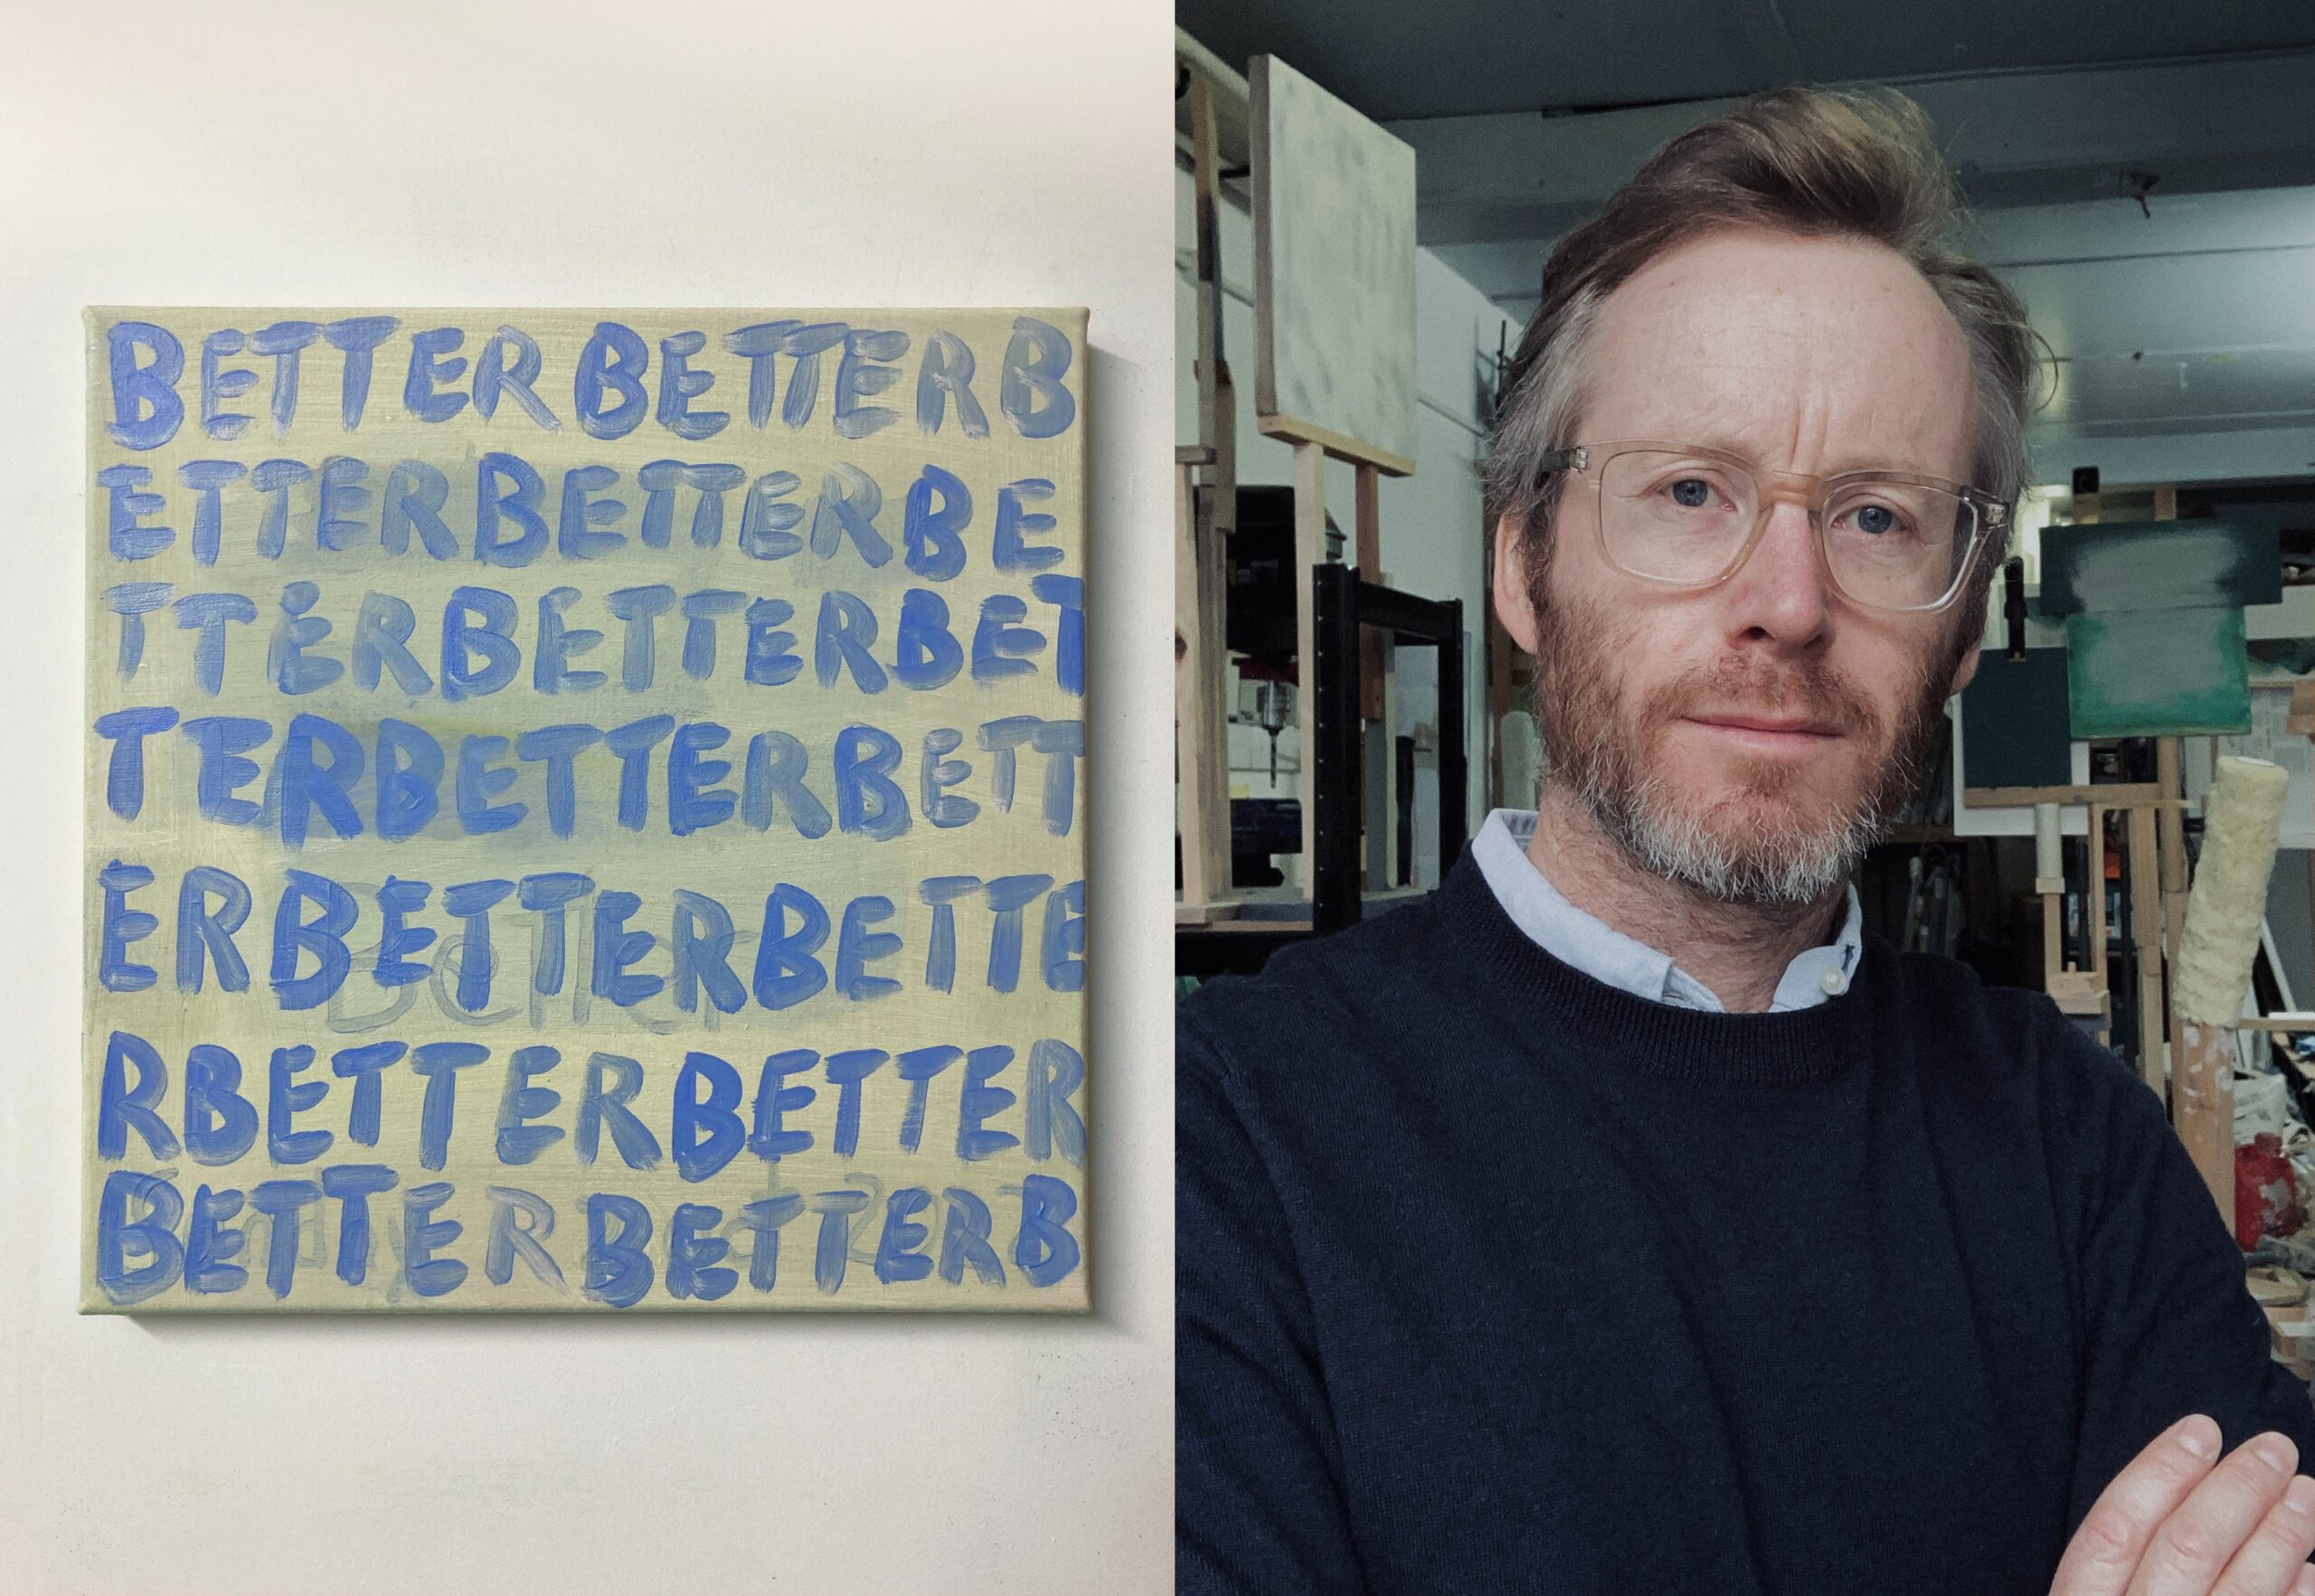 BETTERBETTERB
ETTERBETTERBE
TTERBETTERBET
TERBETTERBETT
ERBETTERBETTE
Better
RBETTERBETTER
BETTERBETTERB